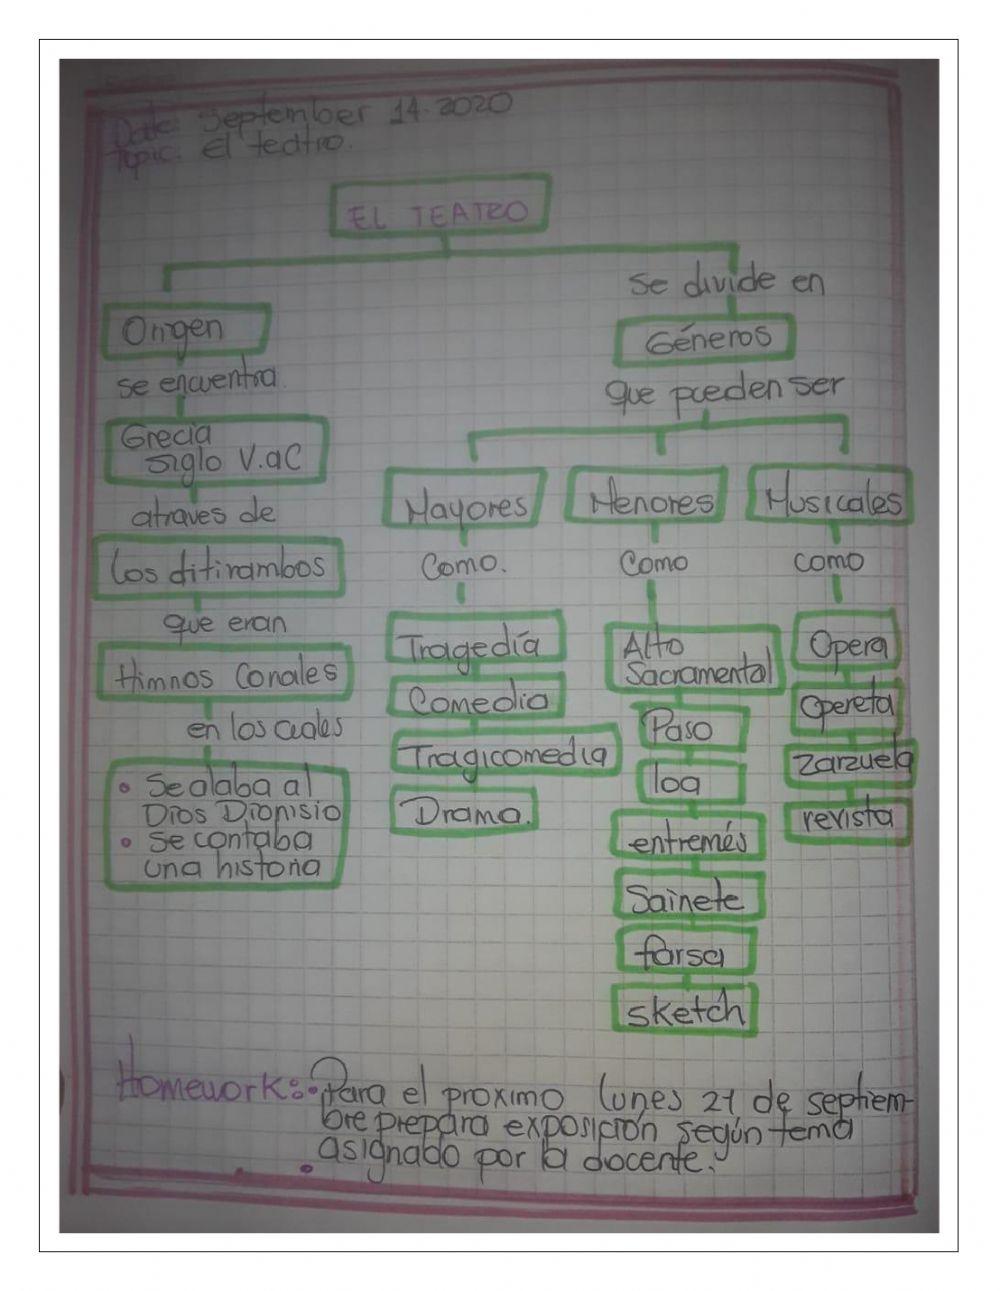 Date: September 14. 2020
Topic: El teatro.
EL TEATRO
Origen
se encuentra
Grecia
siglo V.aC
atraves de
los ditirambos
que eran
Himnos Corales
en los cuales
• Se alaba al
Dios Dionisio
• Se contaba
una historia
se divide en
Géneros
que pueden ser
Mayores
Como.
Tragedía
Comedia
Tragicomedia
Drama.
Menores
Como
Alto
Sacramental
Paso
loa
entremés
Sainete
farsa
sketch
Musicales
como
Opera
Opereta
zarzuela
revista
Homework: • Para el proximo lunes 21 de septiem-
bre prepara exposición según tema
asignado por la docente.
•